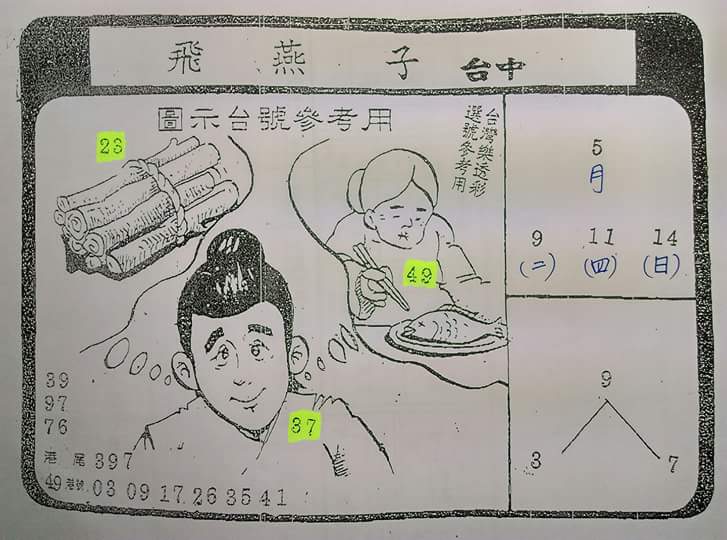 飛燕子 台中
圖示台號參考用
台灣樂透彩
選號參考用
23
49
37
39
97
76
港尾 397
49 港號 03 09 17 26 35 41
5
月
9 11 14
(二) (四) (日)
9
3 7